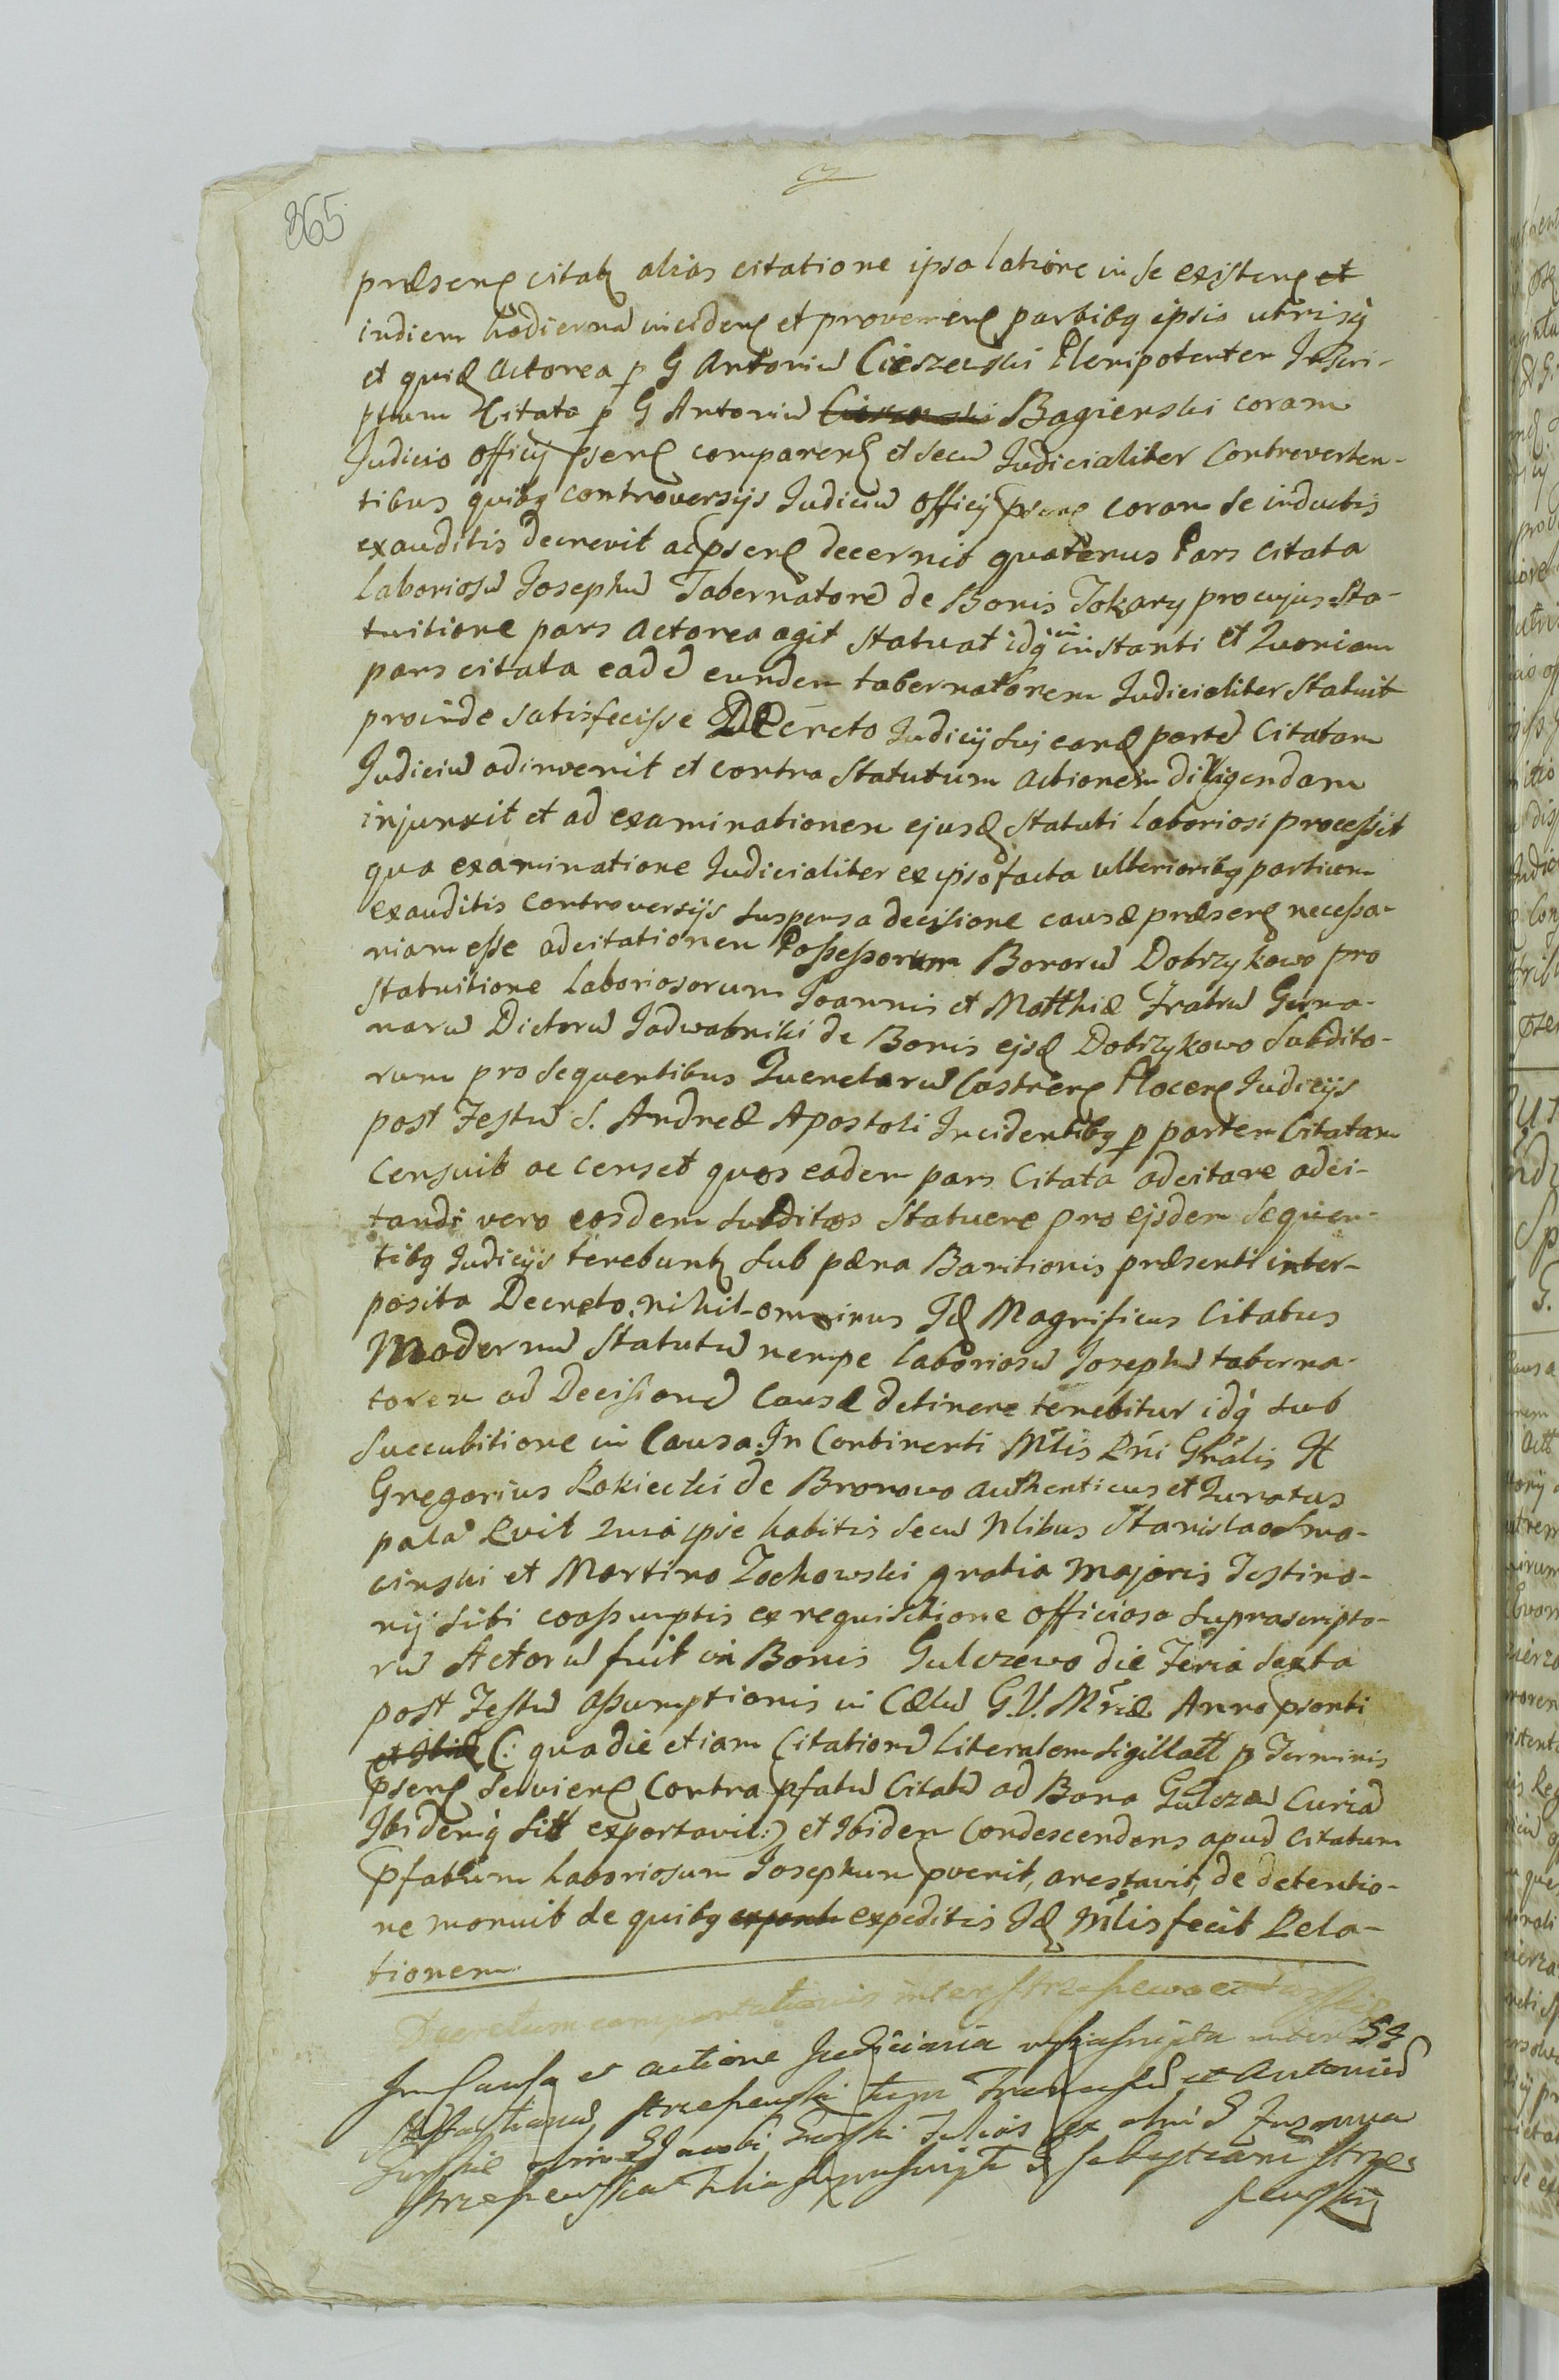 365
præsenꝭ citatꝫ alias citatione ipsa latiore in se existenꝭ et
indiem hodiernã incidenꝭ et provenienꝭ partibꝗ ipsis utrisꝗ
et quidꝭ Actorea ꝑ G Antoniũ Cieszewski Plenipotenter Inscri-
ptum Citata ꝑ G Antoniũ Bagienski coram
Judicio Officij psenꝭ comparenꝭ et secũ Judicialiter Controverten-
tibus quibꝗ controversijs Judiciũ Officij psenꝭ coram se inductis
exauditis decrevit ac psenꝭ decernit quatenus Pars Citata
Laboriosũ Josephũ Tabernatorẽ de Bonis Tokary pro cujus Sta-
tuitione pars Actorea agit statuat idꝗ in instanti et Quoniam
pars citata eadẽ eundem tabernatorem Judicialiter Statuit
proinde satisfecisse Decreto Judicij sui eandꝭ partẽ Citatam
Judiciũ adinvenit et contra Statutum Actionem diligendam
injunxit et ad examinationem ejusdꝭ Statuti laboriosi processit
qua examinatione Judicialiter ex ipso facta ulterioribꝗ partium
exauditis Controversijs suspensa decisione causæ præsenꝭ necessa-
riam esse adcitationem Possessorum Bonorũ Dobrzykowo pro
Statuitione laboriosorum Joannis et Matthiæ Fratrũ Germa-
norũ Dictorũ Jadwabniki de Bonis ejsdꝭ Dobrzykowo Subdito-
rum pro sequentibus Querelarũ Castrenꝭ Plocenꝭ Judicijs
post Festũ S. Andreæ Apostoli Incidentibꝗ ꝑ partem Citatam
Censuit ac censet quos eadem pars Citata adcitare adci-
tandi vero eosdem subditos Statuere pro ejsdem Sequen-
tibꝗ Judicijs tenebuntꝫ sub pæna Banitionis præsenti inter-
posita Decreto, nihil-ominus Idꝭ Magnificus Citatus
Modernũ Statutũ nempe laboriosũ Josephũ taberna-
torem ad Decisionẽ Causæ detinere tenebitur idꝗ sub
succubitione in Causa. In Continenti Mĩlis Rñi Gñralis Ht
Gregorius Rokiecki de Bronowo Authenticus et Juratus
palã Rvit Quia ipse habitis secũ Nlibus Stanislao Smo-
cinski et Martino Zochowski gratia majoris Testimo-
nij sibi coassumptis ex requisitione officiosa suprascripto-
rũ Actorũ fuit in Bonis Gulczewo die Feria Sexta
post Festũ Assumptionis in Cælũ G.V. Mriæ Anno psonti
(: qua die etiam Citationẽ literalem sigillatt ꝑ Terminis
psenꝭ servienꝭ Contra pfatũ Citatũ ad Bona Gulczew Curiã
Ibidemꝗ Sitt exportavit:) et Ibidem Condescendens apud Citatum
pfatum Laboriosum Josephum pvenit, arestavit, de detentio-
ne monuit de quibꝗ expeditis Idꝭ Mĩlis fecit Rela-
tionem
Decretum comportationis inter Strzeszewo et
In Causa et actione Judiciaria infrascripta inter GG
et Antoniũ
olim G Jacobi Gurski Filios ex olim G Zuzanna
Sebastiani Strze-
szewskij